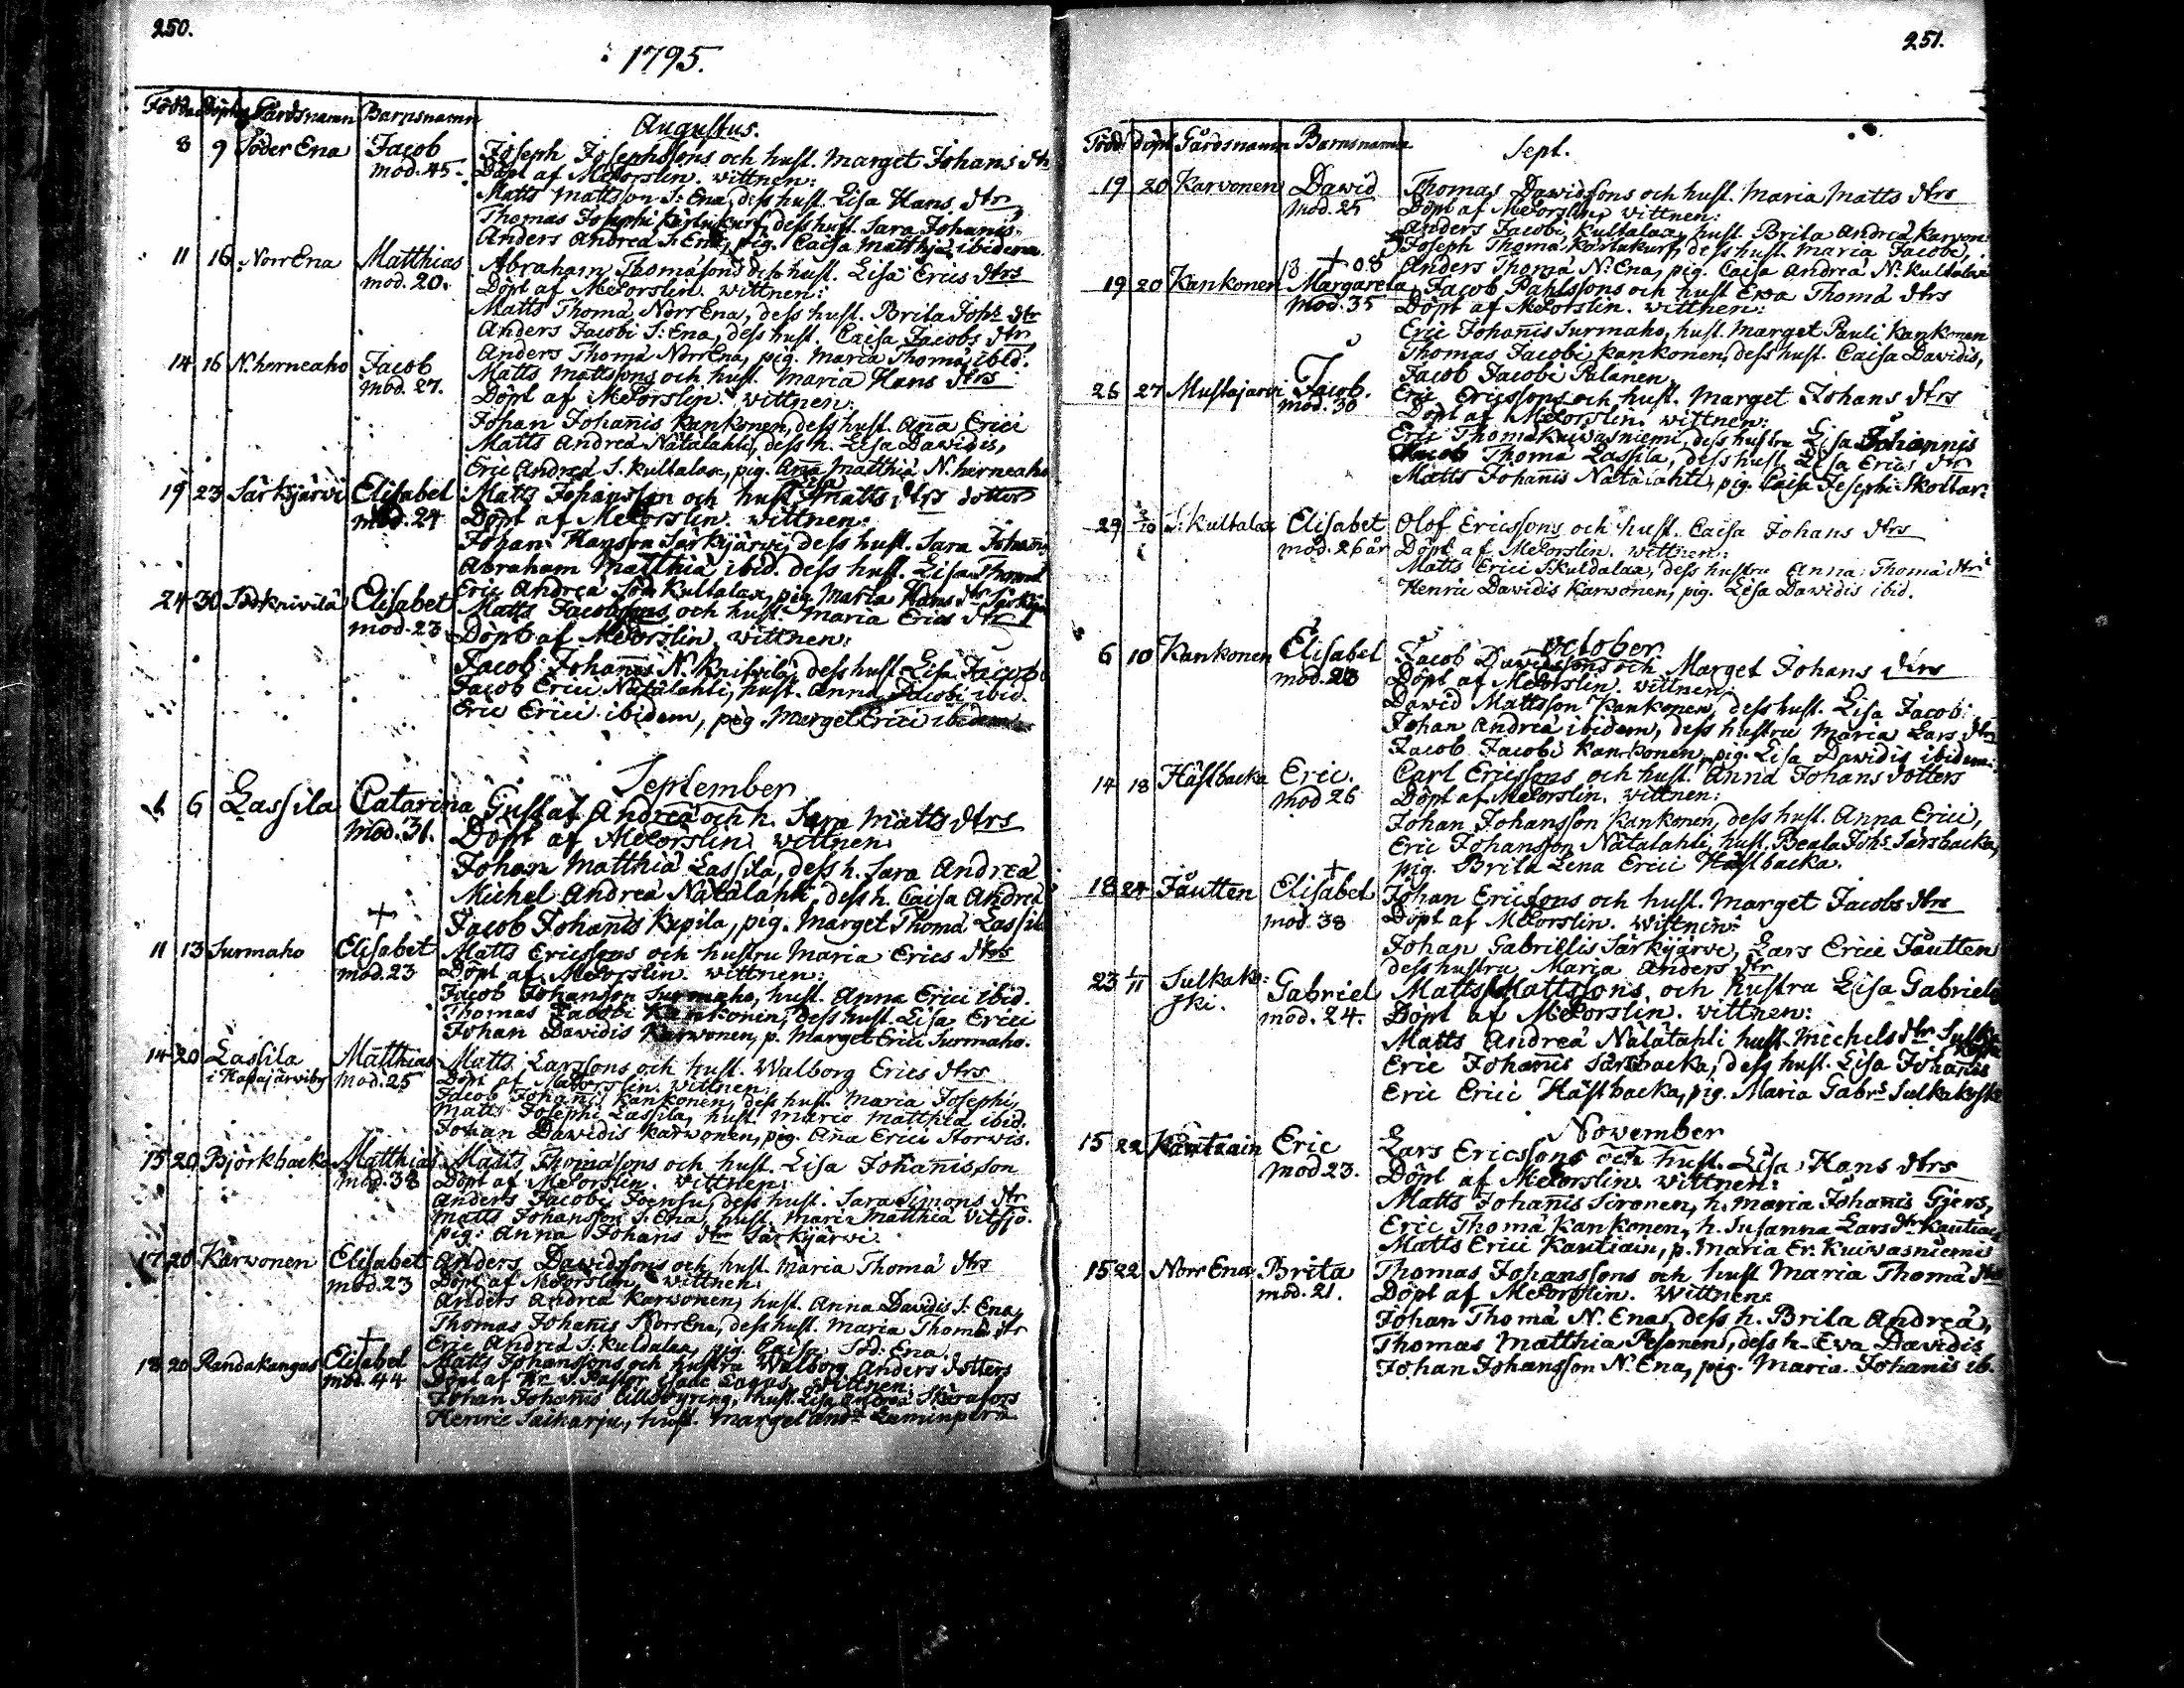 250.
1795.
Födde Döpte Gårdsnamn Barnsnamn
Augustus.
8 9 Söder Ena Jacob Joseph Josephssons och hust. Marget Johans dtr
mod. 45. Döpt af McForslin. Wittnen:
Matts Mattsson S: Ena, dess hust. Lisa Hans dtr
Thomas Josephi dess hust. Sara Johanis
Anders Andreä S: Ena, pig. Caisa Matthiä ibidem
11 16 Norr Ena Matthias Abraham Thomasons dess hust. Lisa Erics dtrs
mod. 20. Döpt af McForslin. Wittnen:
Matts Thomä Norr Ena, dess hust. Brita Johs dtr
Anders Jacobi S: Ena, dess hust. Caisa Jacobs dtr
Anders Thomä Norr Ena, pig. Maria Thomä ibid.
14 16 N. herneaho Jacob Matts Mattssons och hust. Maria Hans dtrs
mod. 27. Döpt af McForslin. Wittnen:
Johan Johanis Kankonen, dess hust. Ana Erici
Matts Andreä Nätälahti, dess h. Lisa Dawidis,
Eric Andreä S. kultalax, pig. Ana Matthiä N. herneaho
19 23 Särkijärvi Elisabet Matts Johansson och hust. Matts dtrs dotter
mod. 24 Döpt af McForslin. Wittnen:
Johan Hansson Särkijärvi, dess hust. Sara Johanis
Abraham Matthiä ibid. dess hust. Lisa Thomä
Eric Andreä Söd Kultalax, pig. Maria Hans dtr
24 30 Södknivilä Elisabet Matts Jacobssons och hust. Maria Erics dtr
mod. 23 Döpt af McForslin. Wittnen:
Jacob Johanis N. Knivilä, dess hust. Lisa Jacobi
Jacob Erici Nätälahti, hust. Anna Jacobi ibid.
Eric Erici ibidem, pig. Marget Erici ibidem
September
6 Lassila Catarina Gustaf Andreä och h. Sara Matts dtrs
mod. 31. Döpt af McForslin Wittnen
Johan Matthiä Lassila, dess h. Sara Andreä
Michel Andreä Nätälahti, dess h. Caisa Andreä
Jacob Johanis Kepila, pig. Marget Thomä Lassila
11 13 Surmaho Elisabet Matts Ericssons och hustru Maria Erics dtrs
mod. 23 Döpt af McForslin. Wittnen:
Jacob Johansson Surmaho, hust. Anna Erici ibid.
Thomas Jacobi Kankonen, dess hust. Lisa Erici
Johan Dawidis Karwonen, p. Marget Erici Surmaho.
14 20 Lassila Matthias Matts Larssons och hust. Walborg Erics dtrs
i Haapajärviby mod. 25 Döpt af McForslin. Wittnen:
Jacob Johanis Kankonen, dess hust. Maria Josephi,
Matts Josephi Lassila, hust Maria Matthiä ibid.
Johan Dawidis Karwonen, pig. Ana Erici Storwis.
15 20 Björkbacka Matthias Matts Thomasons och hust. Lisa Johanisson
mod. 38 Döpt af McForslin. Wittnen:
Anders Jacobi Joensu, dess hust. Sara Simons dtr
Matts Johansson S: Ena, hust. Maria Matthiä Vitsjö.
pig: Anna Johans dtr Särkijärvi.
17 20 Karvonen Elisabet Anders Dawidsons och hust. Maria Thomä dtrs
mod. 23 Döpt af McForslin Wittnen:
Anders Andreä Karvonen, hust. Anna Davidis S: Ena,
Thomas Johanis Norr Ena, dess hust. Maria Thomä dtr
Eric Andreä S: Kuldalax, pig. Caisa Söd: Ena.
18 20 Randakangas Elisabet Matts Johanssons och hustru Walborg Anders dotters
mod. 44 Döpt af Isaac Wittnen:
Johan Johanis hust. Lisa Andreä
Henric hust. Marget
251.
Född Döpt Gårdsnamn Barnsnamn
Sept.
19 20 Karvonen Dawid Thomas Dawidssons och hust. Maria Matts dtrs
Mod. 25 Döpt af McForslin, Wittnen:
Anders Jacobi Kultalax, hust. Brita Andreä Karvon:
Joseph Thomä dess hust. Maria Jacobi,
Anders Thomä N: Ena, pig. Caisa Andreä N: kultalax
19 20 Kankonen Margareta Jacob Pahlssons och hust Ewa Thomä dtrs
Mod. 35 Döpt af McForslin. Wittnen:
Eric Johanis Surmaho, hust. Marget Pauli Kankonen
Thomas Jacobi Kankonen, dess hust. Caisa Davidis,
Jacob Jacobi Palanen
26 27 Mustajarvi Jacob. Eric Ericssons och hust. Marget Johans dtrs
mod. 30 Döpt af McForslin. Wittnen:
Eric Thomä Kuiwasniemi, dess hustru Lisa Johannis
Jacob Thomä Lassila, dess hust. Lisa Erics dtr
Matts Johanis Nätälahti, pig. Caisa Josephi Skoltar
29 S: kultalax Elisabet Olof Ericssons och hust. Caisa Johans dtrs
mod. 26 år Döpt af McForslin. Wittnen:
Matts Erici S: kuldalax, dess hustru Anna Thomä dtr
Henric Davidis Karvonen, pig. Lisa Davidis ibid.
October
6 10 Kankonen Elisabet Jacob Dawidssons och Marget Johans dtrs
mod. 23 Döpt af McForslin. Wittnen:
Dawid Mattsson Kankonen, dess hust. Lisa Jacobi
Johan Andreä ibidem, dess hustru Maria Lars dtr
Jacob Jacobi Kankonen, pig. Lisa Dawidis ibidem.
14 18 Hästbacka Eric. Carl Ericssons och hust. Anna Johans dotters
Mod 26 Döpt af McForslin. Wittnen:
Johan Johansson Kankonen, dess hust. Anna Erici,
Eric Johansson Nätälahti, hust. Beata Johs Särsbacka,
pig. Brita Lena Erici Hästbacka.
18 24 Jåutten Elisabet Johan Ericsons och hust. Marget Jacobs dtrs
mod. 38 Döpt af McForslin. Wittnen:
Johan Gabrielis Särkijärvi, Lars Erici Jåutten
dess hustru Maria Anders dtr
23 1/11 Sulkako: Gabriel Matts Mattssons och hustru Lisa Gabriels
ski. mod. 24. Döpt af McForslin. Wittnen:
Matts Andreä Nätätahti hust. Michels dtr
Eric Johanis Särsbacka, dess hust. Lisa Johanis
Eric Erici Hästbacka, pig. Maria Gabr: Sulkakoski
November
15 22 Kautiain Eric Lars Ericssons och hust. Lisa Hans dtrs
Mod 23. Döpt af McForslin Wittnen:
Matts Johanis Sironen, h. Maria Johanis Gjers,
Eric Thomä Kankonen, h. Susanna Lars dtr Kautiain
Matts Erici Kautiain, p. Maria Er. Kuiwasniemi
15 22 Norr Ena Brita Thomas Johanssons och hust Maria Thomä dtr
mod. 21. Döpt af McForslin. Wittnen:
Johan Thomä N. Ena, dess h. Brita Andreä,
Thomas Matthiä Pesonen, dess h. Eva Davidis
Johan Johansson N. Ena, pig. Maria Johanis ib.